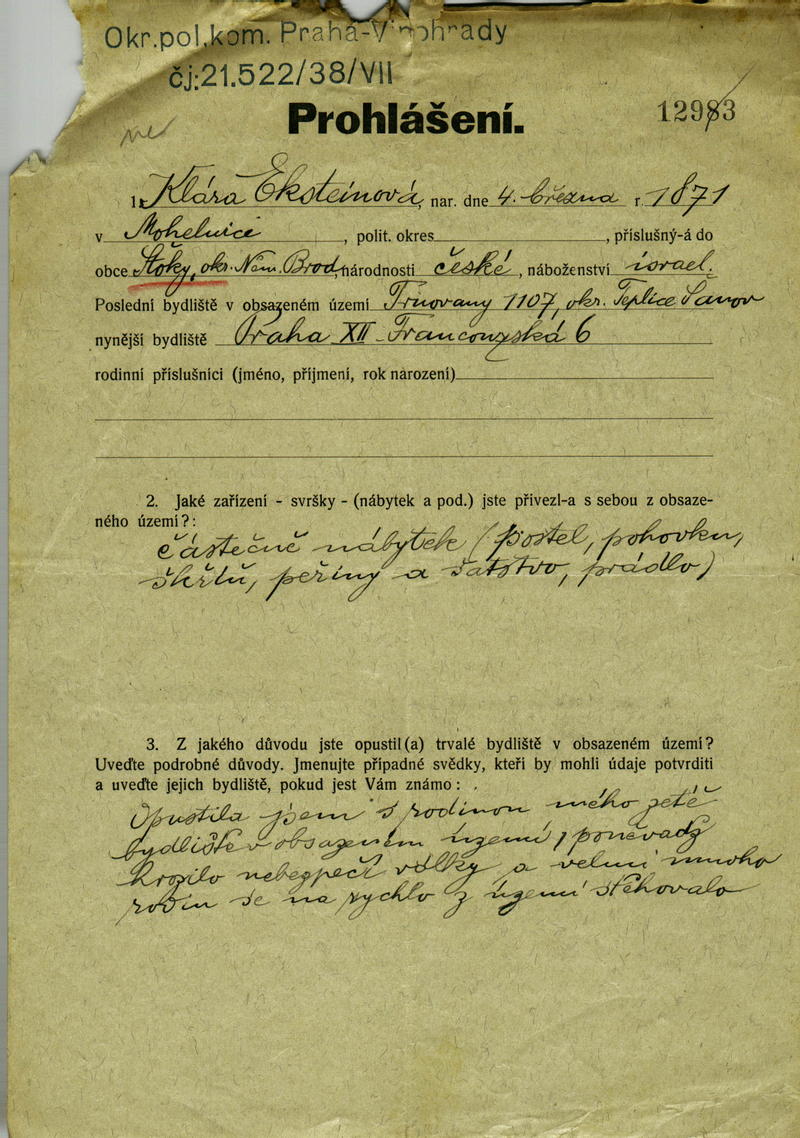 Okr.pol.kom. Praha-Vinohrady
čj:21.522/38/VII
Prohlášení.
12983
ne
1. Klára Eksteinová, nar. dne 4. března r. 1871
v Mohelnici, polit. okres, příslušný-á do
obce Štoky, okr. Něm. Brod, národnosti české, náboženství israel.
Poslední bydliště v obsazeném území Trnovany 1107, okr. Teplice Šanov
nynější bydliště Praha XII - Francouzská 6
rodinní příslušníci (jméno, příjmení, rok narození)
2. Jaké zařízení - svršky - (nábytek a pod.) jste přivezl-a s sebou z obsaze-
ného území?:
částečně nábytek (postel, pohovku,
skříň, peřiny a šatstvo, prádlo)
3. Z jakého důvodu jste opustil(a) trvalé bydliště v obsazeném území?
Uveďte podrobné důvody. Jmenujte případné svědky, kteří by mohli údaje potvrditi
a uveďte jejich bydliště, pokud jest Vám známo:
Opustila jsem s rodinou mého zetě
bydliště v obsazeném území, poněvadž
hrozilo nebezpečí války a velmi mnoho
rodin se na rychlo z území stěhovalo